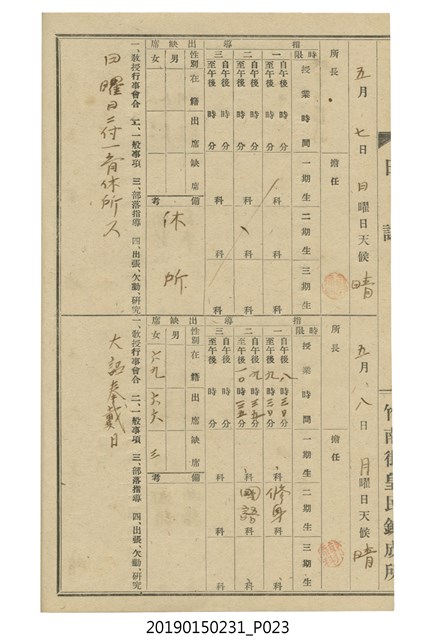 日誌
竹南街皇民錬成所
五月七日日曜日天候晴
所長
擔任
指導
時限 授業時間 一期生 二期生 三期生
一 自午後 時 分 至午後 時 分 科 科 科
二 自午後 時 分 至午後 時 分 科 科 科
三 自午後 時 分 至午後 時 分 科 科 科
出缺席
性別 在籍 出席 缺席 備考
男
女
休所
一、教授行事會合 二、一般事項 三、部落指導 四、出張、欠勤、研究
日曜日ニ付一斉休所ス
五月八日月曜日天候晴
所長
擔任
指導
時限 授業時間 一期生 二期生 三期生
一 自午後 八時三〇分 至午後 九時三〇分 科 修身科 科
二 自午後 九時三五分 至午後 一〇時三五分 科 國語科 科
三 自午後 時 分 至午後 時 分 科 科 科
出缺席
性別 在籍 出席 缺席 備考
男
女 六九 六六 三
一、教授行事會合 二、一般事項 三、部落指導 四、出張、欠勤、研究
大詔奉戴日
20190150231_P023